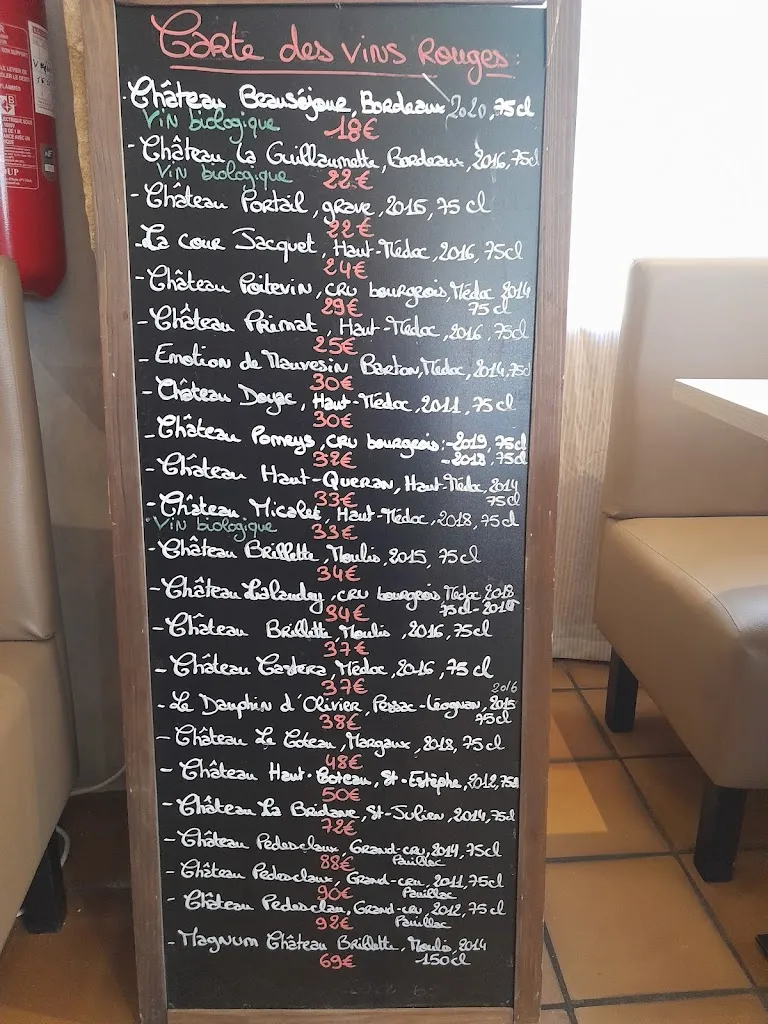 Carte des vins Rouges
- Château Beauséjour, Bordeaux 2020, 75cl
Vin biologique 18€
- Château La Guillaumette, Bordeaux, 2016, 75cl
Vin biologique 22€
- Château Portail, grave, 2015, 75cl
22€
- La cour Jacquet, Haut-Médoc, 2016, 75cl
24€
- Château Poitevin, CRU bourgeois, Médoc 2014
29€ 75cl
- Château Primat, Haut-Médoc, 2016, 75cl
25€
- Emotion de Mauvesin Barton, Médoc, 2014, 75cl
30€
- Château Doyac, Haut-Médoc, 2011, 75cl
30€
- Château Pomeys, CRU bourgeois: -2019, 75cl
32€ -2018, 75cl
- Château Haut-Queran, Haut-Médoc, 2014
33€ 75cl
- Château Micalet, Haut-Médoc, 2018, 75cl
Vin biologique 33€
- Château Brillette, Moulis, 2015, 75cl
34€
- Château Lalaudey, CRU bourgeois, Médoc 2018
34€ 75cl - 2019
- Château Brillette, Moulis, 2016, 75cl
37€
- Château Castera, Médoc, 2016, 75cl
37€ 2016
- Le Dauphin d'Olivier, Pessac-Léognan, 2015
38€ 75cl
- Château Le Coteau, Margaux, 2018, 75cl
48€
- Château Haut-Coteau, St-Estèphe, 2012, 75cl
50€
- Château La Bridane, St-Julien, 2014, 75cl
72€
- Château Pedesclaux, Grand-cru, 2014, 75cl
88€ Pauillac
- Château Pedesclaux, Grand-cru, 2011, 75cl
90€ Pauillac
- Château Pedesclau, Grand-cru, 2012, 75cl
92€ Pauillac
- Magnum Château Brillette, Moulis, 2014
69€ -150cl